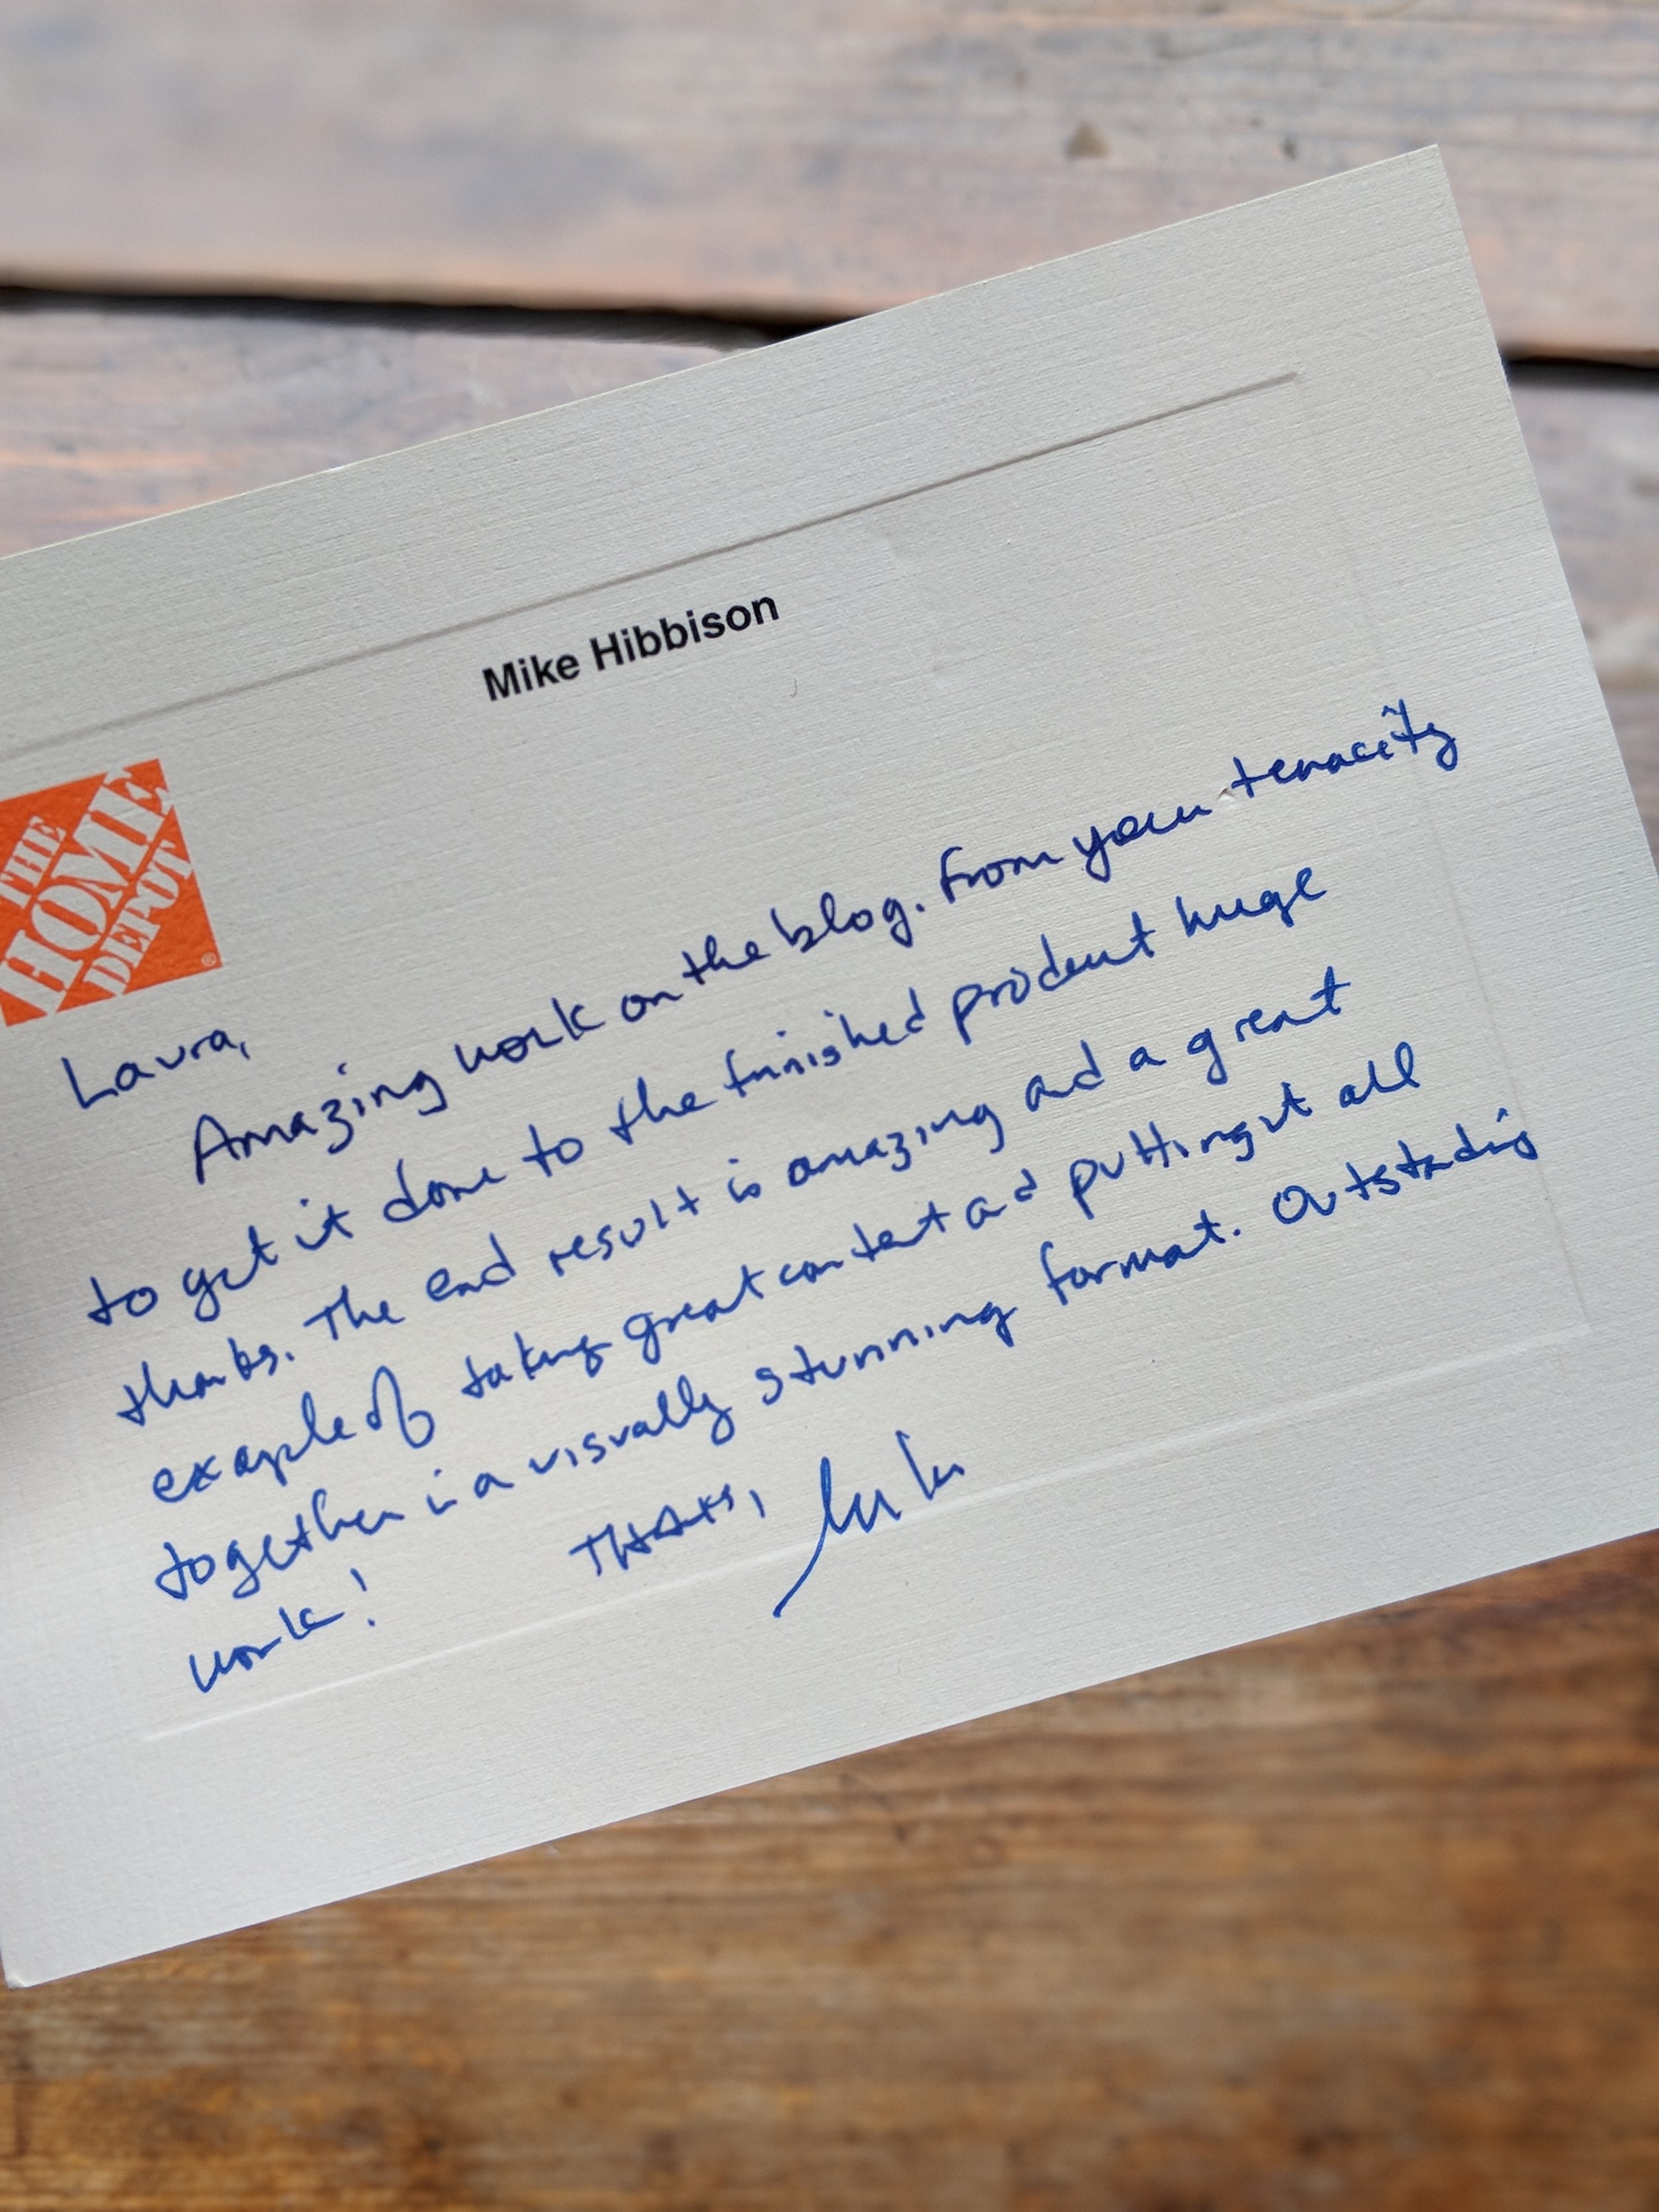 Mike Hibbison
THE
HOME
DEPOT
®
Laura,
Amazing work on the blog. From your tenacity
to get it done to the finished product huge
thanks. The end result is amazing and a great
example of taking great content and putting it all
together in a visually stunning format. Outstanding
work!
THANKS,
Mike